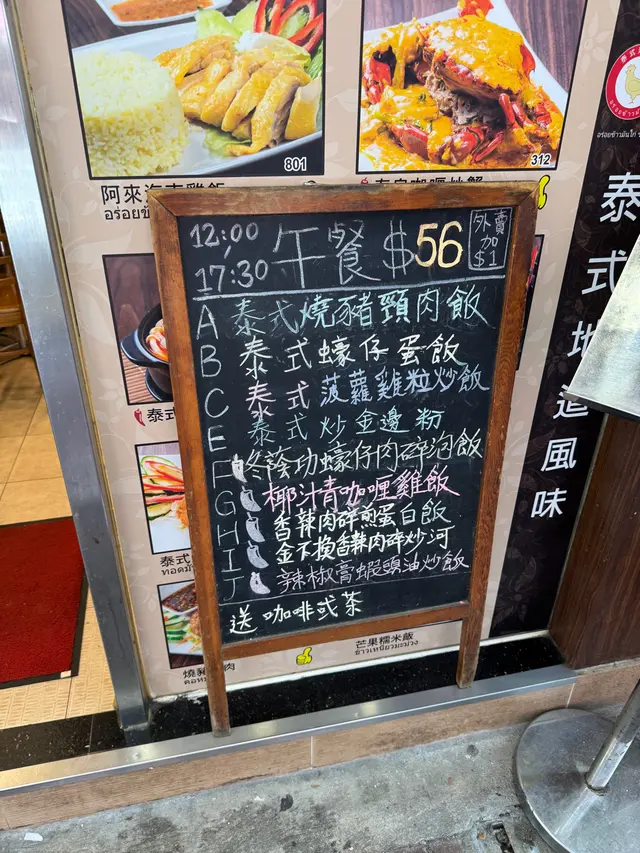 801
312
阿來海南雞飯
泰式
อร่อยข้าวมันไก่
12:00
17:30
午餐 $56
外賣
加
$1
A 泰式燒豬頸肉飯
B 泰式蠔仔蛋飯
C 泰式菠蘿雞粒炒飯
E 泰式炒金邊粉
F 冬蔭功蠔仔肉碎泡飯
G 椰汁青咖喱雞飯
H 香辣肉碎煎蛋白飯
I 金不換香辣肉碎炒河
J 辛辣椒膏蝦頭油炒飯
送 咖啡或茶
泰式地道風味
泰
泰式
芒果糯米飯
ข้าวเหนียวมะม่วง